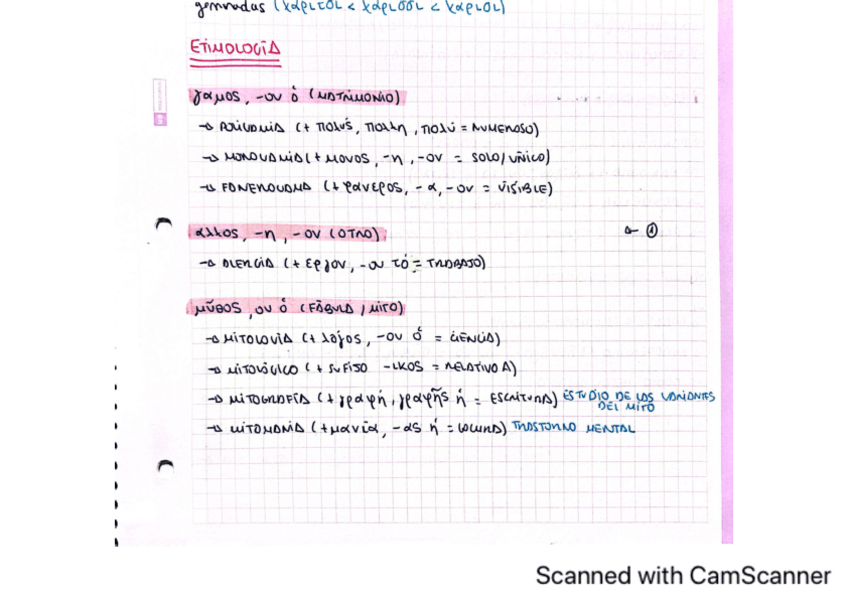 geminadas (χάριτσι < χάρισσι < χάρισι)
ETIMOLOGÍA
γαμος, -ου ὁ (MATRIMONIO)
→ POLIGAMIA (+ πολύς, πολλη, πολύ = NUMEROSO)
→ MONOGAMIA (+ μονος, -η, -ον = SOLO/ÚNICO)
→ FANEROGAMA (+ φανερος, -α, -ον = VISIBLE)
αλλος, -η, -ον (OTRO)
→ ALERGIA (+ εργον, -ου τό = TRABAJO)
μῦθος, ου ὁ (FÁBULA / MITO)
→ MITOLOGIA (+ λογος, -ου ὁ = CIENCIA)
→ MITOLÓGICO (+ SUFIJO -ικος = RELATIVO A)
→ MITOGRAFÍA (+ γραφή, γραφῆς ἡ = ESCRITURA) ESTUDIO DE LAS VARIANTES
DEL MITO
→ MITOMANIA (+ μανία, -ας ἡ = LOCURA) TRASTORNO MENTAL
Scanned with CamScanner